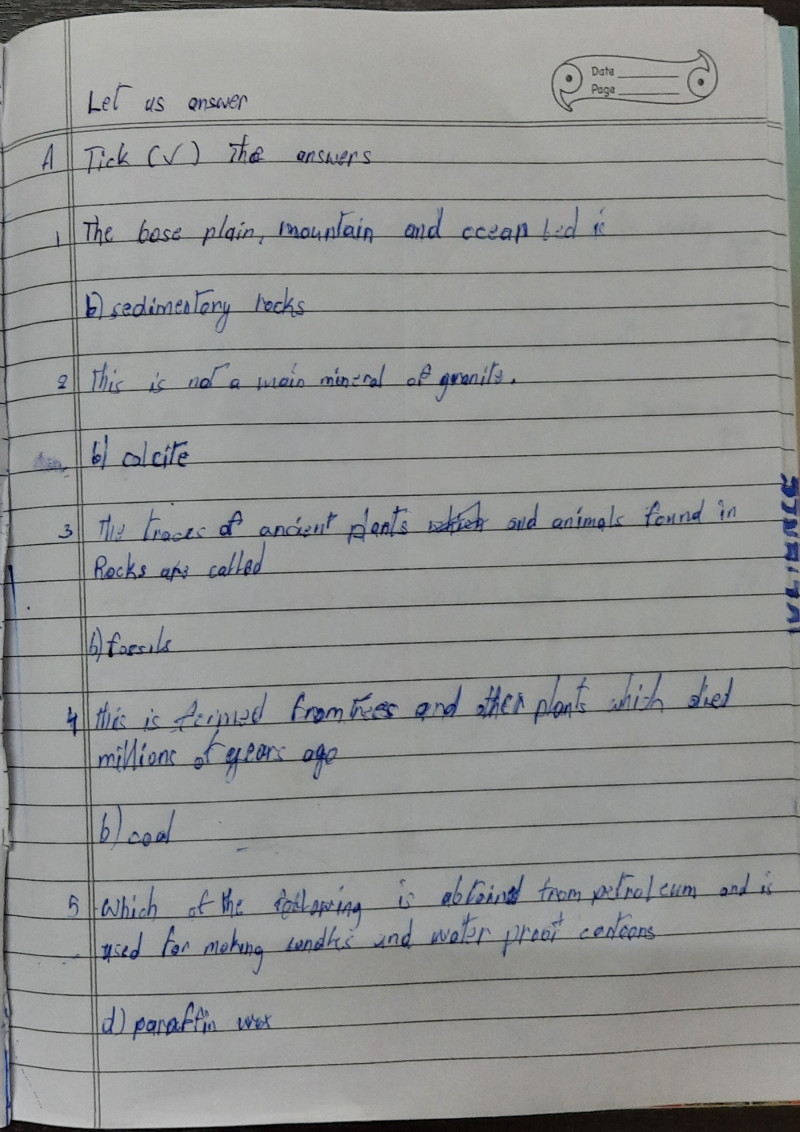 Date
Page
Let us answer
A Tick (✓) the answers
1 The base plain, mountain and ocean bed is
b) sedimentary rocks
2 This is not a main mineral of granite.
b) calcite
3 The traces of ancient plants which and animals found in
Rocks are called
b) fossils
4 this is formed from trees and other plants which died
millions of years ago
b) coal
5 Which of the following is obtained from petroleum and is
used for making candles and water proof cartoons
d) paraffin wax